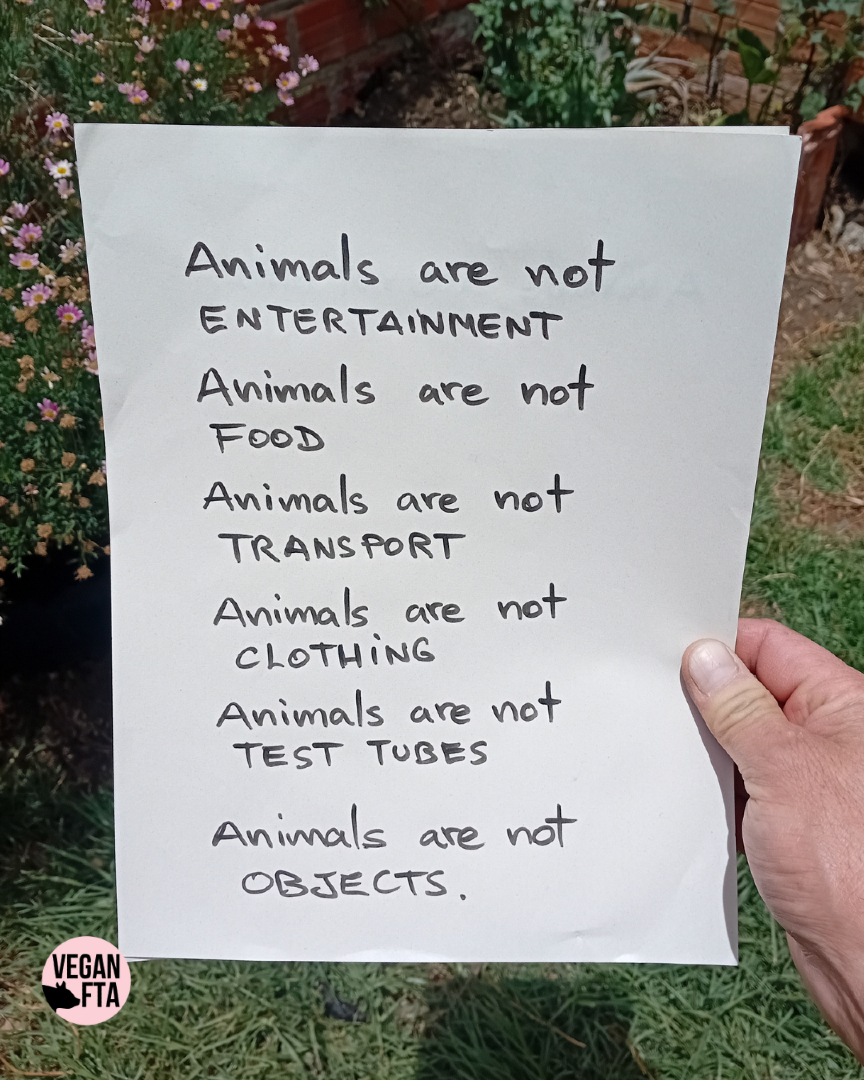 Animals are not
ENTERTAINMENT
Animals are not
FOOD
Animals are not
TRANSPORT
Animals are not
CLOTHING
Animals are not
TEST TUBES
Animals are not
OBJECTS.
VEGAN
FTA